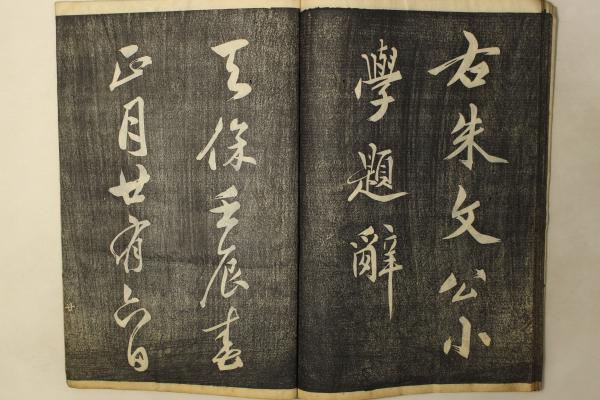 右朱文公小
學題辭
天保壬辰春
正月廿有六日
廿